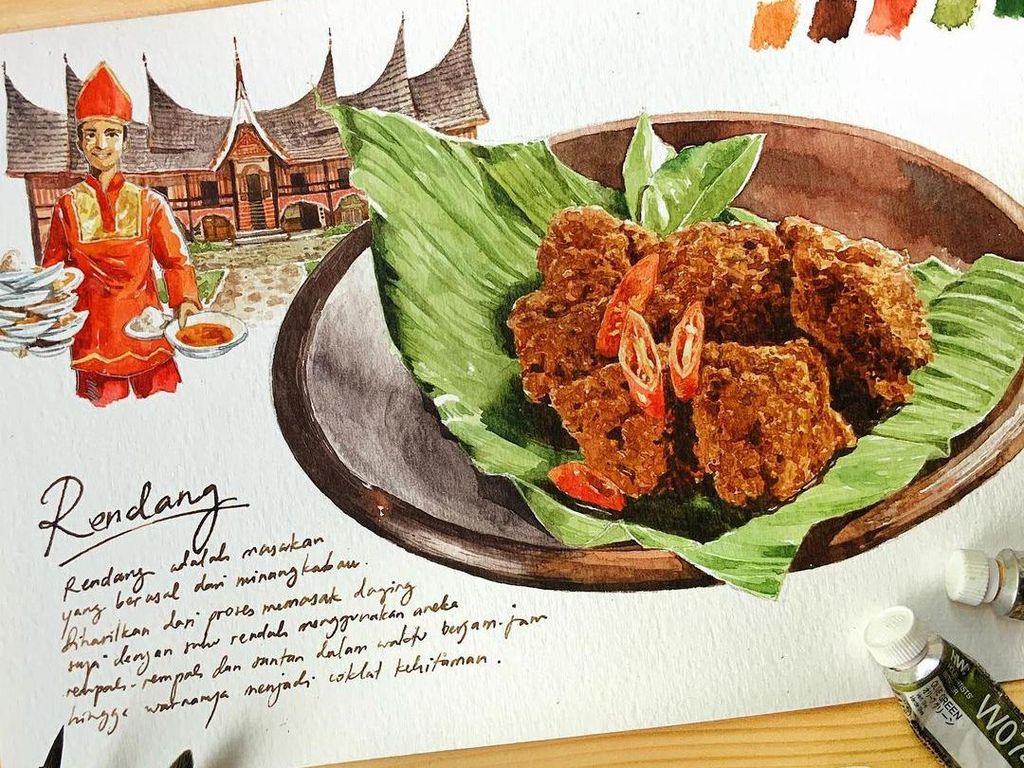 Rendang
Rendang adalah masakan
yang berasal dari minangkabau.
Dihasilkan dari proses memasak daging
sapi dengan suhu rendah menggunakan aneka
rempah-rempah dan santan dalam waktu berjam-jam
hingga warnanya menjadi coklat kehitaman.
GREEN
W07